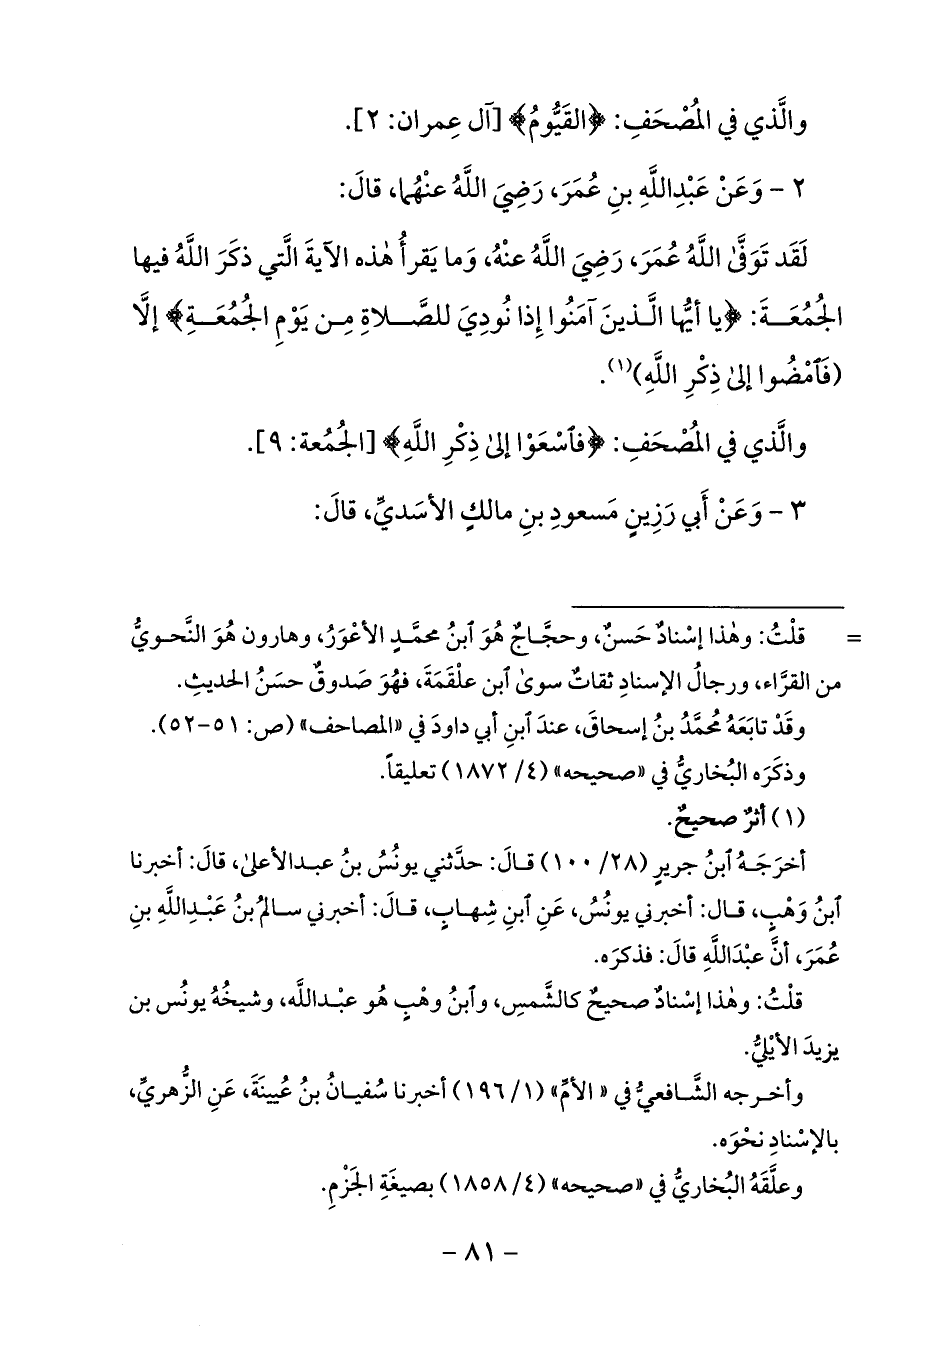 والَّذي في المُصْحَفِ: ﴿القَيُّومُ﴾ [آل عِمران: ٢].
٢ - وَعَنْ عَبْدِاللَّهِ بنِ عُمَرَ، رَضِيَ اللَّهُ عنْهُما، قالَ:
لَقَد تَوَفَّىٰ اللَّهُ عُمَرَ، رَضِيَ اللَّهُ عنْهُ، وَما يَقرأُ هٰذه الآيةَ الَّتي ذكَرَ اللَّهُ فيها
الجُمُعَةَ: ﴿يا أيُّها الَّذينَ آمَنُوا إِذا نُودِيَ للصَّلاةِ مِن يَوْمِ الجُمُعَةِ﴾ إلَّا
(فَٱمْضُوا إلىٰ ذِكْرِ اللَّهِ)(١).
والَّذي في المُصْحَفِ: ﴿فٱسْعَوْا إلىٰ ذِكْرِ اللَّهِ﴾ [الجُمُعة: ٩].
٣ - وَعَنْ أَبي رَزِينٍ مَسعودِ بنِ مالكٍ الأسَديِّ، قالَ:
= قلْتُ: وهٰذا إسْنادٌ حَسنٌ، وحجَّاجٌ هُوَ ٱبنُ محمَّدٍ الأعْوَرُ، وهارون هُوَ النَّحويُّ
من القرَّاء، ورجالُ الإسنادِ ثقاتٌ سوىٰ ٱبن علْقمَةَ، فهُوَ صَدوقٌ حسَنُ الحديثِ.
وقَدْ تابَعَهُ مُحمَّدُ بنُ إسحاقَ، عندَ ٱبنِ أبي داودَ في «المصاحف» (ص: ٥١-٥٢).
وذكَرَه البُخاريُّ في «صحيحه» (٤/ ١٨٧٢) تعليقاً.
(١) أثرٌ صحيحٌ.
أخرَجَهُ ٱبنُ جريرٍ (٢٨/ ١٠٠) قالَ: حدَّثني يونُسُ بنُ عبدالأعلىٰ، قالَ: أخبرنا
ٱبنُ وَهْبٍ، قال: أخبرني يونُسُ، عَنِ ٱبنِ شِهابٍ، قالَ: أخبرني سالمُ بنُ عَبْدِاللَّهِ بنِ
عُمَرَ، أنَّ عبْدَاللَّهِ قالَ: فذكرَه.
قلْتُ: وهٰذا إسْنادٌ صحيحٌ كالشَّمسِ، وٱبنُ وهْبٍ هُو عبْداللَّه، وشيخُهُ يونُس بن
يزيدَ الأيْليُّ.
وأخرجه الشَّافعيُّ في «الأمِّ» (١/ ١٩٦) أخبرنا سُفيانُ بنُ عُيينَةَ، عَنِ الزُّهريِّ،
بالإسْنادِ نحْوَه.
وعلَّقَهُ البُخاريُّ في «صحيحه» (٤/ ١٨٥٨) بصيغَةِ الجَزْمِ.
- ٨١ -